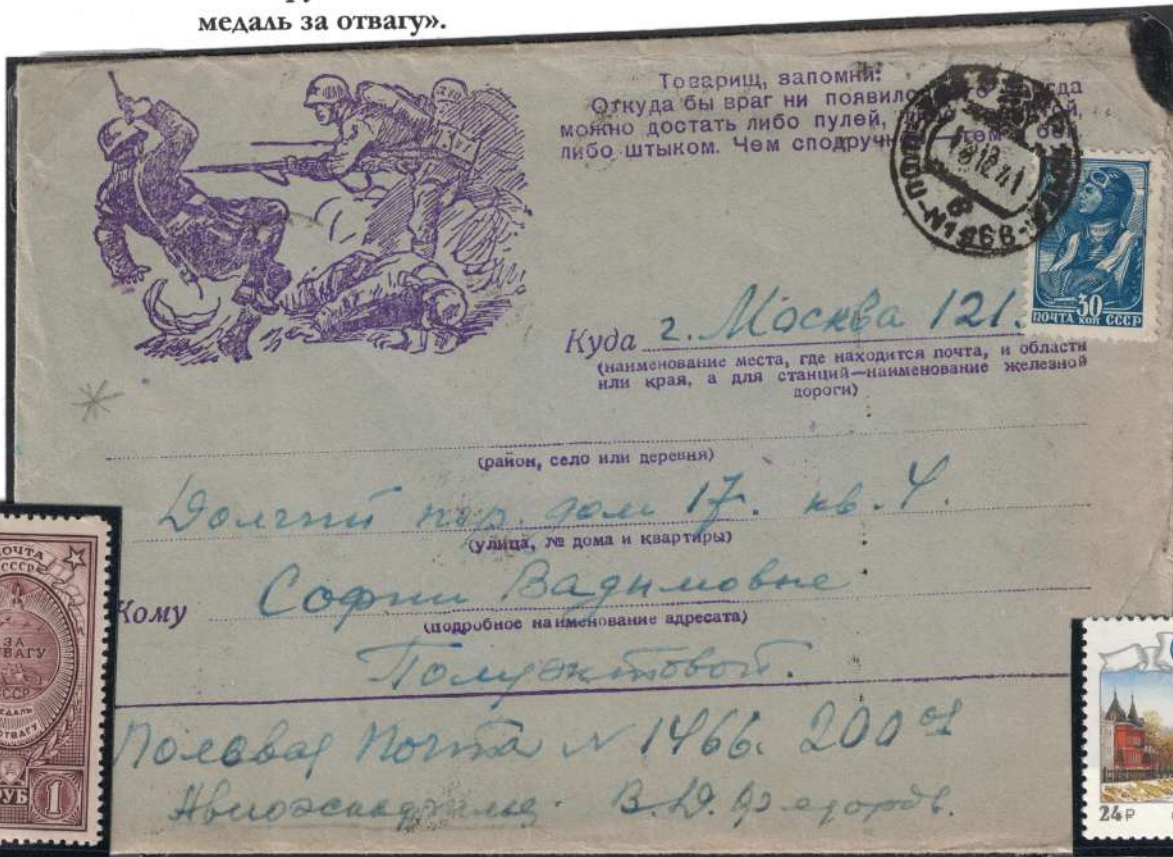 медаль за отвагу».
Товарищ, запомни:
Откуда бы враг ни
можно достать либо пулей,
либо штыком. Чем
ПОЧТА КОП СССР
30
Куда г. Москва 121.
(наименование места, где находится почта, и области
или края, а для станций—наименование железной
дороги)
(район, село или деревня)
Долгий пер. дом 17. кв. 4.
(улица, № дома и квартиры)
Кому Софии Вадимовне
(подробное наименование адресата)
Полуэктовой.
Полевая почта № 1466. 200
Авиоэскадрилья. В.Д. Федоров.
ПОЧТА
СССР
ЗА
ОТВАГУ
СССР
МЕДАЛЬ
ОТВАГУ
РУБ 1
24Р